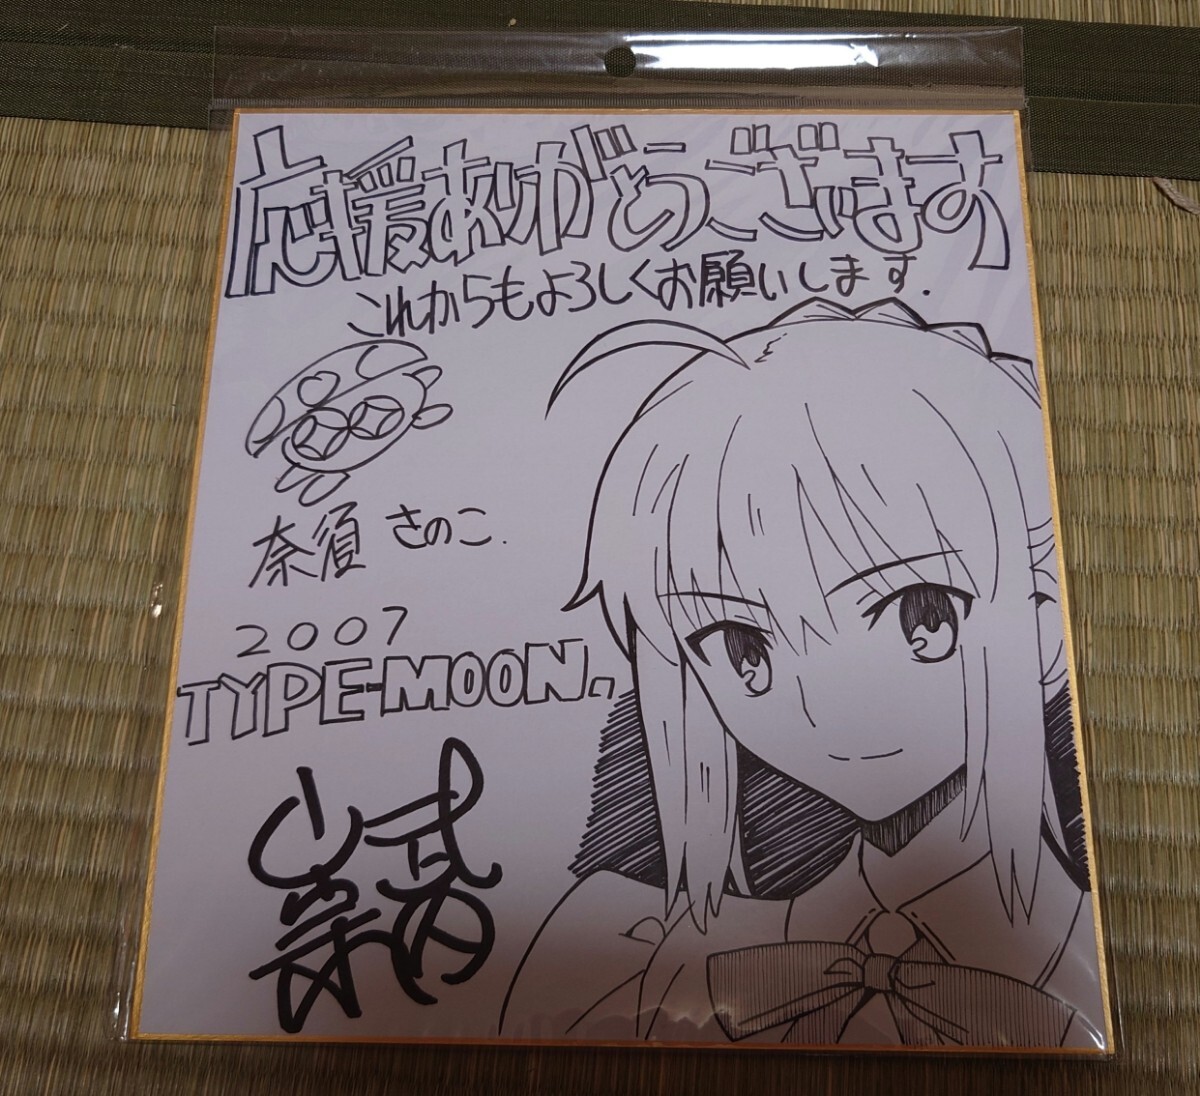 応援ありがとうございます
これからもよろしくお願いします.
奈須 きのこ.
2007
TYPE-MOON.